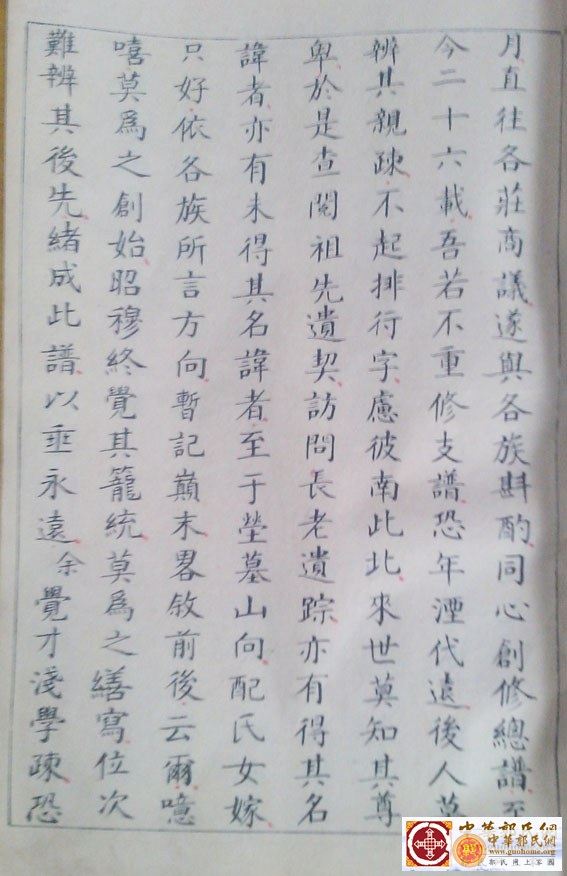 月直往各莊商議遂與各族斟酌同心創修總譜至
今二十六載吾若不重修支譜恐年湮代遠後人莫
辨其親疎不起排行字慮彼南此北來世莫知其尊
卑於是查閱祖先遺契訪問長老遺踪亦有得其名
諱者亦有未得其名諱者至于塋墓山向配氏女嫁
只好依各族所言方向暫記巔末畧敘前後云爾噫
嘻莫爲之創始昭穆終覺其籠統莫爲之繕寫位次
難辨其後先緒成此譜以垂永遠余覺才淺學疎恐
中華郭氏網
www.guohome.org
郭氏網上家園